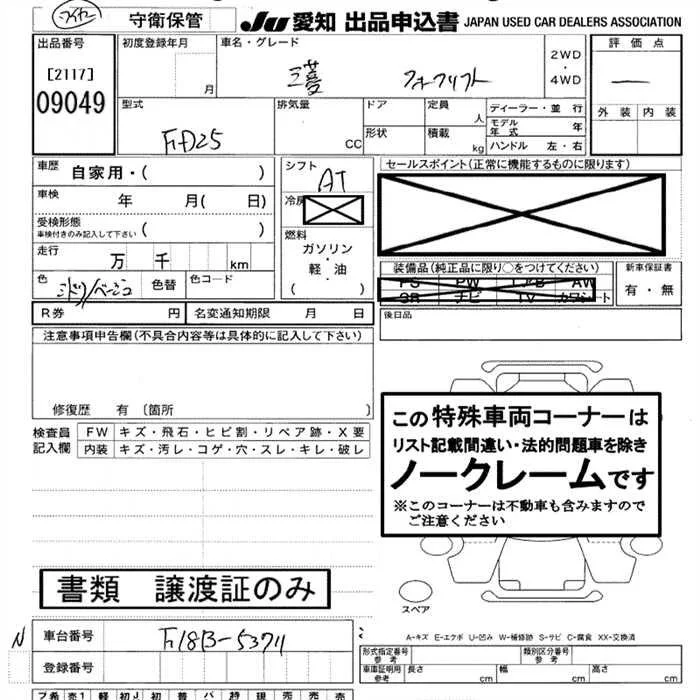 守衛保管 JU 愛知 出品申込書 JAPAN USED CAR DEALERS ASSOCIATION
出品番号 初度登録年月 車名・グレード 2WD・4WD 評価点
[2117] 月 三菱 フォークリフト
09049 型式 排気量 CC ドア 定員 人 ディーラー・並行 外装 内装
FD25 形状 積載 kg モデル年式 年
ハンドル 左・右
車歴 自家用・( ) シフト AT セールスポイント(正常に機能するものに限ります)
車検 年 月( 日) 冷房
受検形態 車検付きのみ記入して下さい ( ) 燃料
走行 万 千 km ガソリン・軽・油 ( )
装備品(純正品に限り○をつけてください) 新車保証書
PS PW エアB AW 有・無
SR ナビ TV カワシート
色 ミドリ/ベージュ 色替 色コード
R券 円 名変通知期限 月 日 後日品
注意事項申告欄(不具合内容等は具体的に記入して下さい)
修復歴 有 〔箇所 〕
検査員記入欄 FW キズ・飛石・ヒビ割・リペア跡・X要
内装 キズ・汚レ・コゲ・穴・スレ・キレ・破レ
この特殊車両コーナーは
リスト記載間違い・法的問題車を除き
ノークレームです
※このコーナーは不動車も含みますので
ご注意ください
書類 譲渡証のみ
スペア
N 車台番号 F18B-53711
A-キズ E-エクボ U-凹み W-補修跡 S-サビ C-腐食 XX-交換済
登録番号
形式指定番号 参考 類別区分番号 参考
車庫証明用 参考 長さ cm 幅 cm 高さ cm